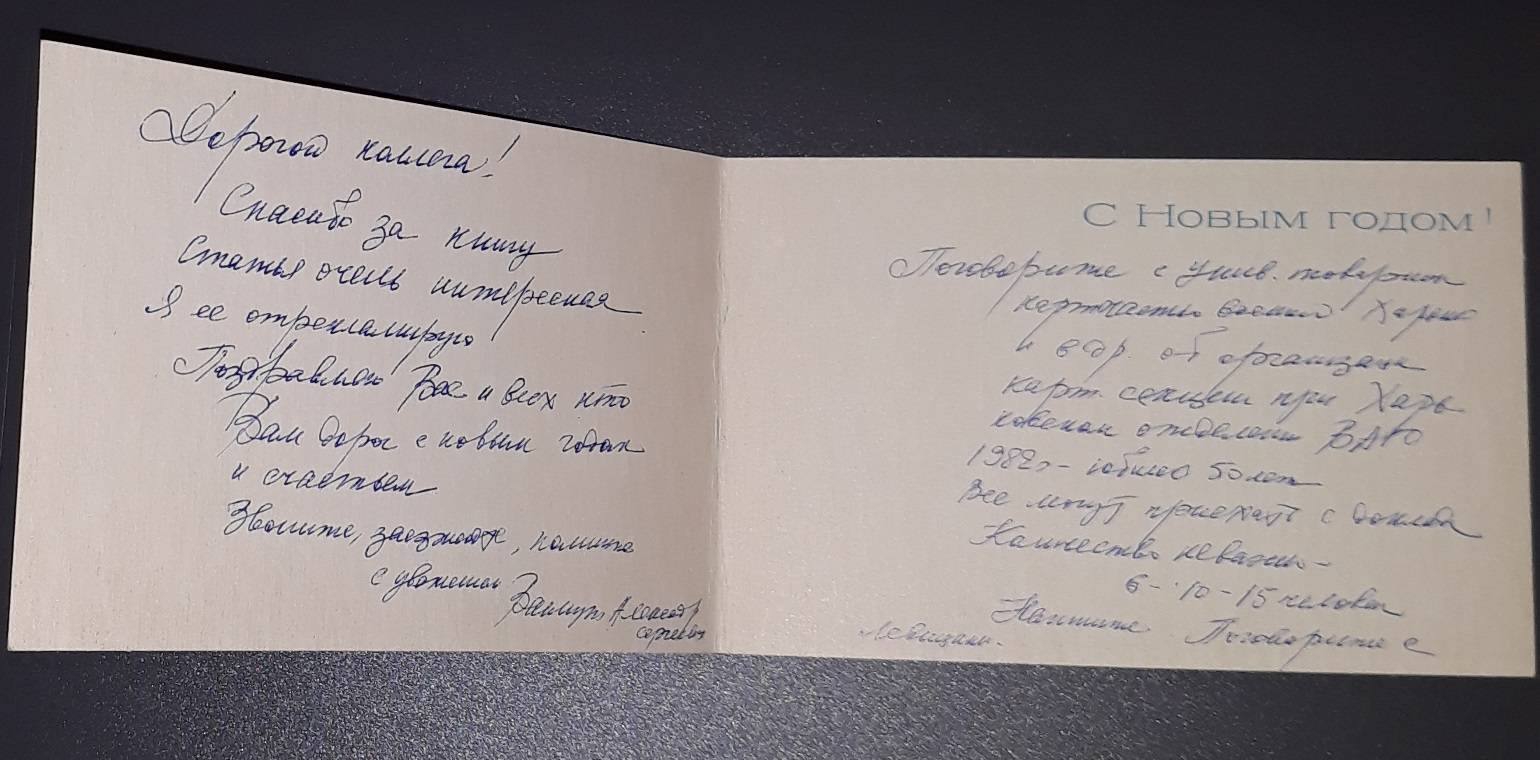 Дорогой коллега!
Спасибо за книгу
Статья очень интересная
Я ее отрекламирую
Поздравляю Вас и всех кто
Вам дорог с новым годом
и счастьем
Звоните, заезжайте, пишите
с уважением
Александр
Сергеевич
С Новым годом!
Поговорите с Унив.
и др. об организации
карт. секции при Харь
ковском отделении ВАГО
1982г - юбилей 50 лет
Все могут приехать с доклад
Количество неважно -
6 - 10 - 15 человек
Поговорите с